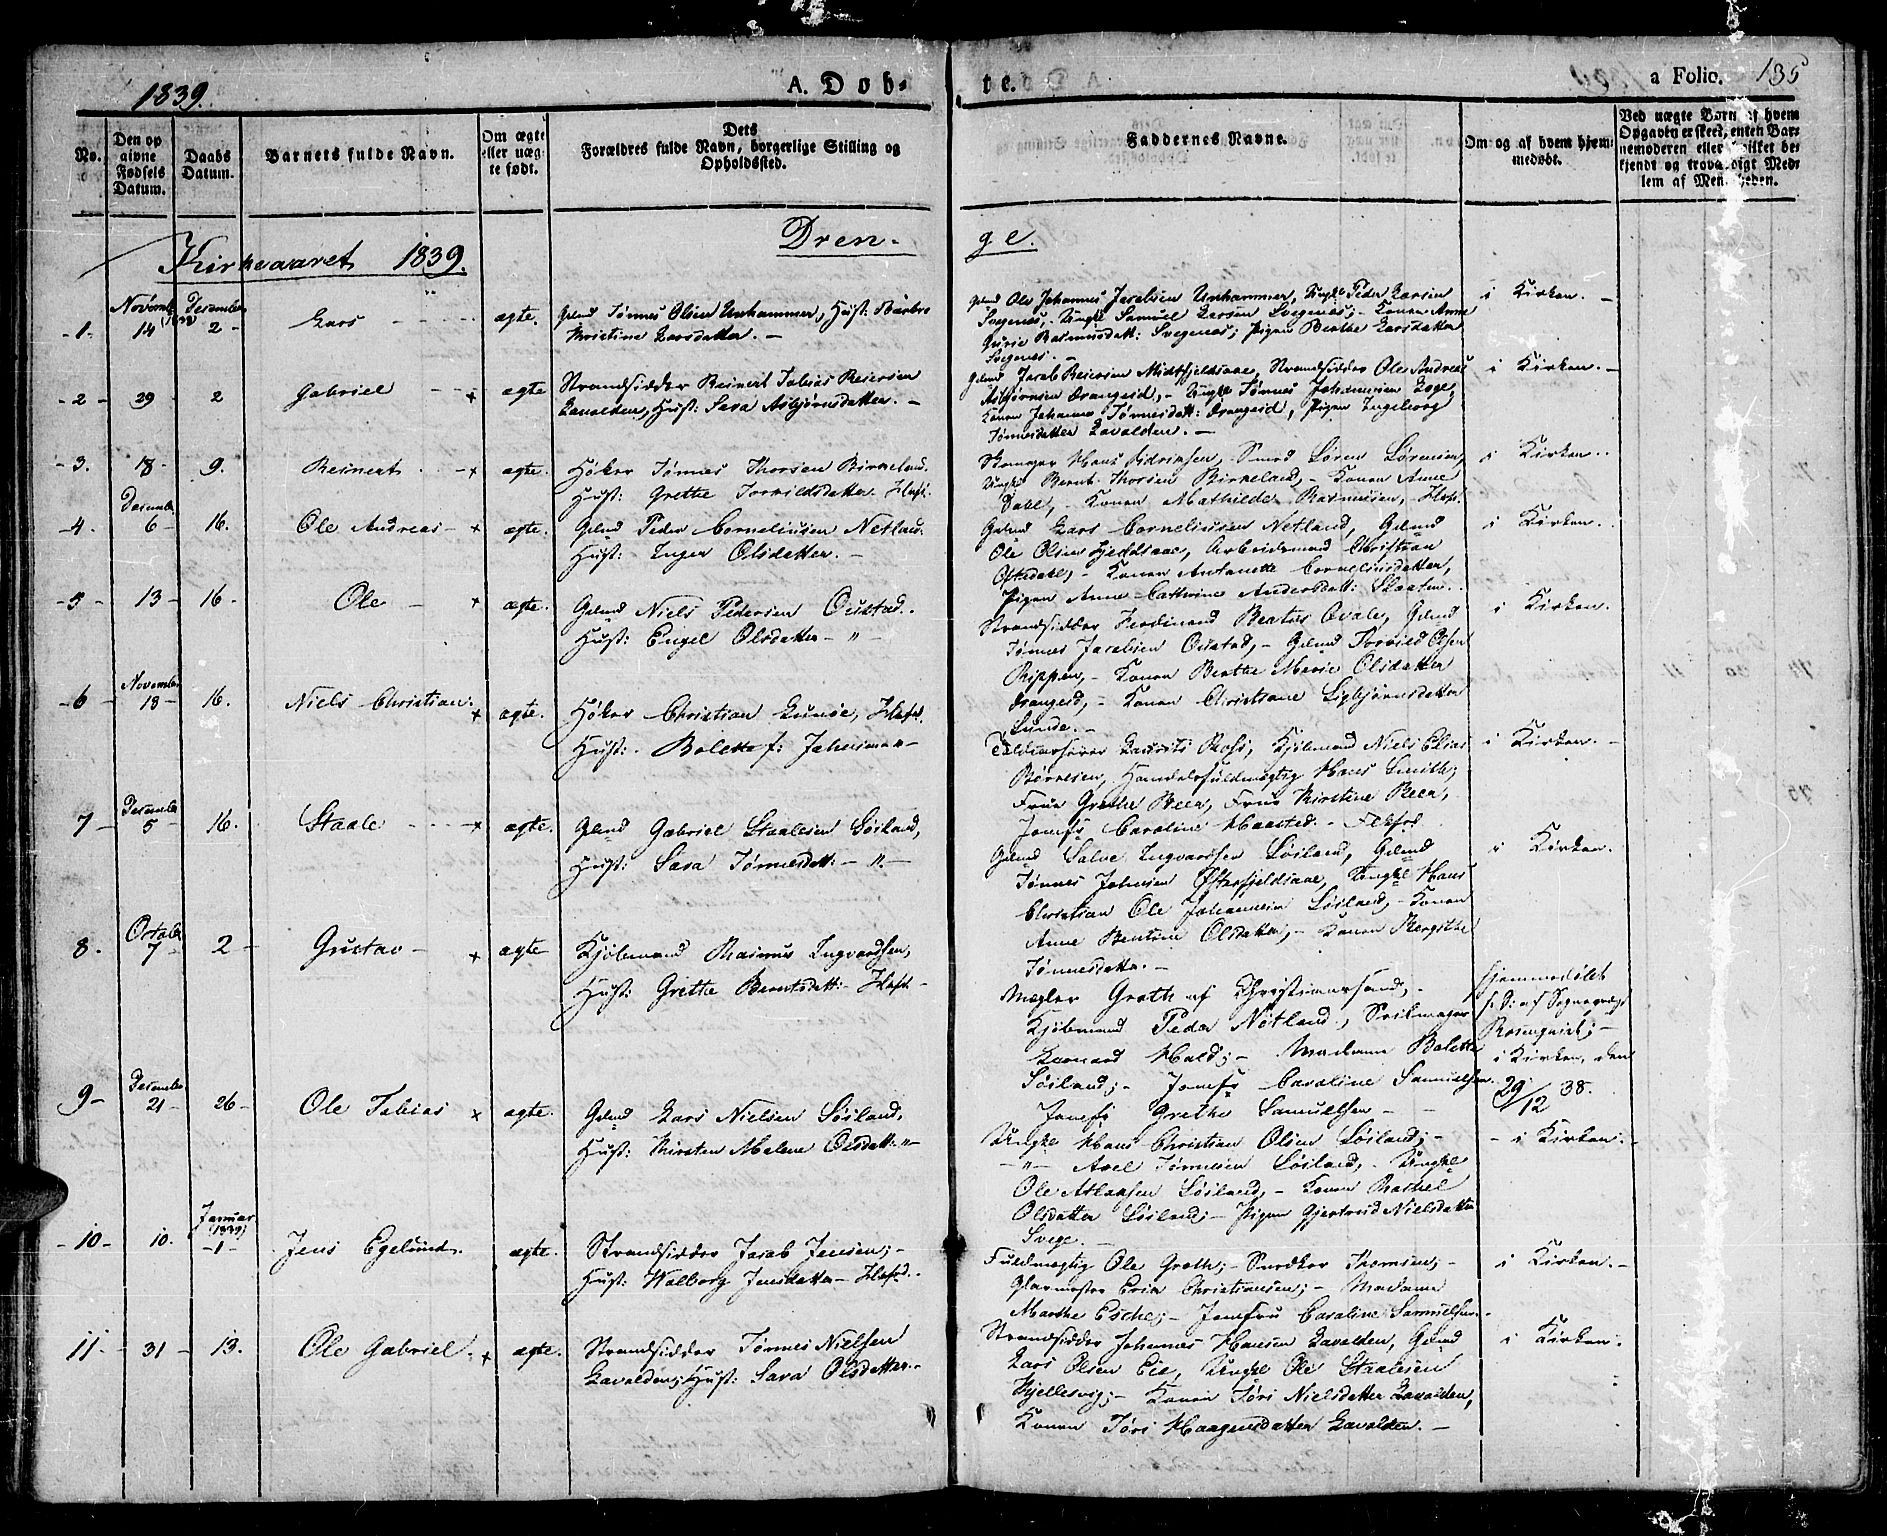 1839.
A. Døb-
te.
a Folio. 135
No.
Den op
givne
Fødsels
Datum.
Daabs
Datum.
Barnets fulde Navn.
Om ægte
eller uæg-
te født.
Dets
Forældres fulde Navn, borgerlige Stilling og
Opholdssted.
Faddernes Navne.
Om og af hvem hjem-
medøbt.
Ved uægte Børn af hvem
Opgaven er skeet, enten Bar-
nemoderen eller hvilket be-
kjendt og troværdigt Med-
lem af Menigheden.
Kirkeaaret 1839.
Dren-
ge.
1. Novemb: 14 (1838) Desember 2 Lars ægte. Gdmd Tønnes Olsen Unhammer, Hust: Barbro
Christine Larsdatter.
Gdmd Ole Johannes Jacobsen Unhammer, Ungkl Peder Larsen
Svegenes, Ungkl Samuel Larsen Svegenes; Konen Anne
Gurie Rasmusdatt: Svegenes; Pigen Berthe Larsdatter
Svegenes.
i Kirken.
2 29 2 Gabriel ægte Strandsidder Reinert Tobias Reiersen
Lavolden, Hust: Sara Asbjørnsdatter.
Gdmd Jacob Reiersen Midtfjeldsaae, Strandsidder Ole Andreas
Asbjørnsen Drangeid, Ungkl Tønnes Johannesen
Konen Johanne Tønnesdatt: Drangeid, Pigen Ingeborg
Tønnesdatter Lavolden.
i Kirken.
3. 18 9. Reinert ægte. Høker Tønnes Thorsen Birkeland.
Hust: Grethe Torkildsdatter. Flekf.
Hans Adriansen, Smed Søren Sørensen,
Ungkl Bernt Thorsen Birkeland, Konen Anne
Dahl, Konen Mathilde Rasmusen, Flekf.
i Kirken.
4. Desember 6 16. Ole Andreas ægte. Gdmd Peder Corneliusen Netland.
Hust: Inger Olsdatter.
Gdmd Lars Corneliusen Netland, Gdmd
Ole Olsen Fjeldsaae, Arbeidsmand Christian
Oftedahl, Konen Antonette Corneliusdatter,
Pigen Anne Cathrine Andersdatt: Skaaten.
i Kirken.
5 13 16. Ole ægte. Gdmd Niels Pedersen Oustad.
Hust: Engel Olsdatter
Strandsidder Ferdinand Beatus Qvale, Gdmd
Tønnes Jacobsen Oustad, Gdmd Torkild Olsen
Rippen, Konen Berthe Marie Olsdatter
Drangeid, Konen Christiane Sigbjørnsdatter
Lunde.
i Kirken.
6 November 18 16. Niels Christian. ægte. Høker Christian Lunøe, Flekf.
Hust: Bolette f: Johnsen
Lauritz Ross, Kjøbmand Niels Elias
Børresen, Handelsfuldmægtig Hans Smith;
Frue Grethe Beer, Frue Kirstine Beer,
Jomfr Caroline Haasted. Flekfjord
i Kirken.
7 Desember 5 16. Staale ægte. Gdmd Gabriel Staalesen Løiland,
Hust: Sara Tønnesdatt:
Gdmd Salve Ingvardsen Løiland, Gdmd
Tønnes Johnsen Østerfjeldsaae, Ungkl Hans
Christian Ole Johannesen Løiland, Konen
Anne Bentine Olsdatter, Konen Bergitthe
Tønnesdatter.
i Kirken.
8. October 7 2 Gustav ægte Kjøbmand Rasmus Ingvardsen,
Hust: Grethe Berntsdatt: Flekf.
Mægler Groth af Christianssand;
Kjøbmand Peder Nøtland, Seilmager
Leonard Hald; Madame Bolette
Løiland; Jomfr Caroline Samuelsen.
Jomfr Grethe Samuelsen
hjemmedøbt
f. D: af Sognepræst
Rosenqvist;
i Kirken, den
29/12 38.
9 Desember 21 26 Ole Tobias ægte. Gdmd Lars Nielsen Løiland,
Hust: Kirsten Malene Olsdatt:
Ungkl Hans Christian Olsen Løiland;
Axel Tønnesen Løiland, Ungkl
Ole Atlaksen Løiland, Konen Rachel
Olsdatter Løiland; Pigen Gjertrud Nielsdatter
Svege.
i Kirken.
10 10. Januar (1839) 1 Jens Egelund. ægte. Strandsidder Jacob Jensen;
Hust: Walborg Jensdatter Flekf.
Fuldmægtig Ole Groth; Snedker Thomsen;
Glarmester Eria Christiansen; Madame
Marthe Esche; Jomfru Caroline Samuelsen.
i Kirken.
11. 31 13. Ole Gabriel ægte. Strandsidder Tønnes Nielsen
Lavolden; Hust: Sara Olsdatter.
Strandsidder Johannes Hansen Lavolden, Gdmd
Lars Olsen Eie, Ungkl Ole Staalesen
Kjellesvig; Konen Tøri Nielsdatter Lavolden,
Konen Tøri Haagensdatter Lavolden.
i Kirken.